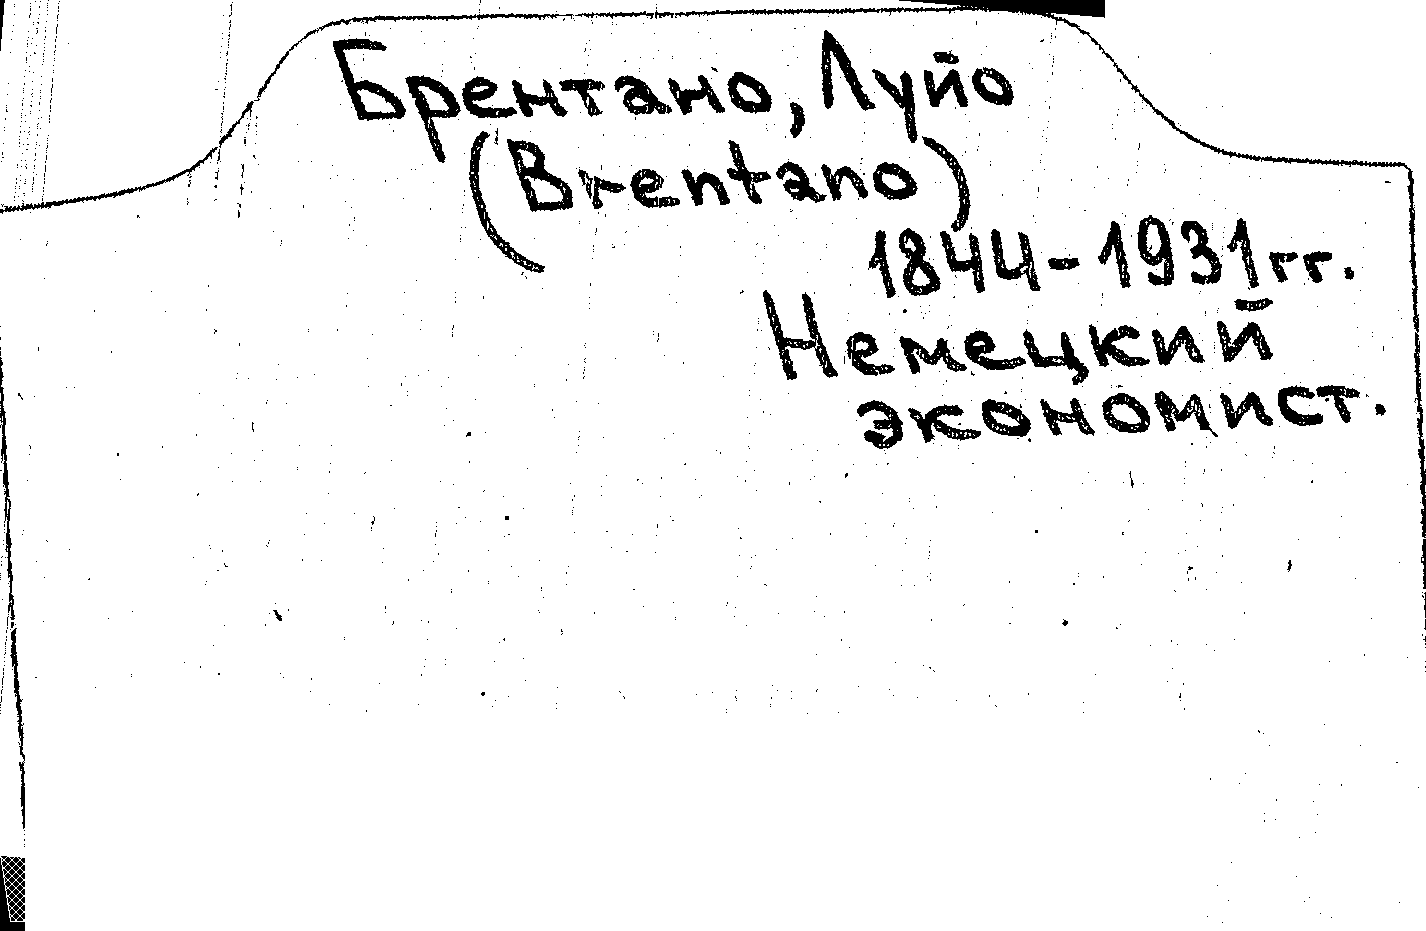 Брентано, Луйо
(Brentano)
1844-1931 гг.
Немецкий
экономист.